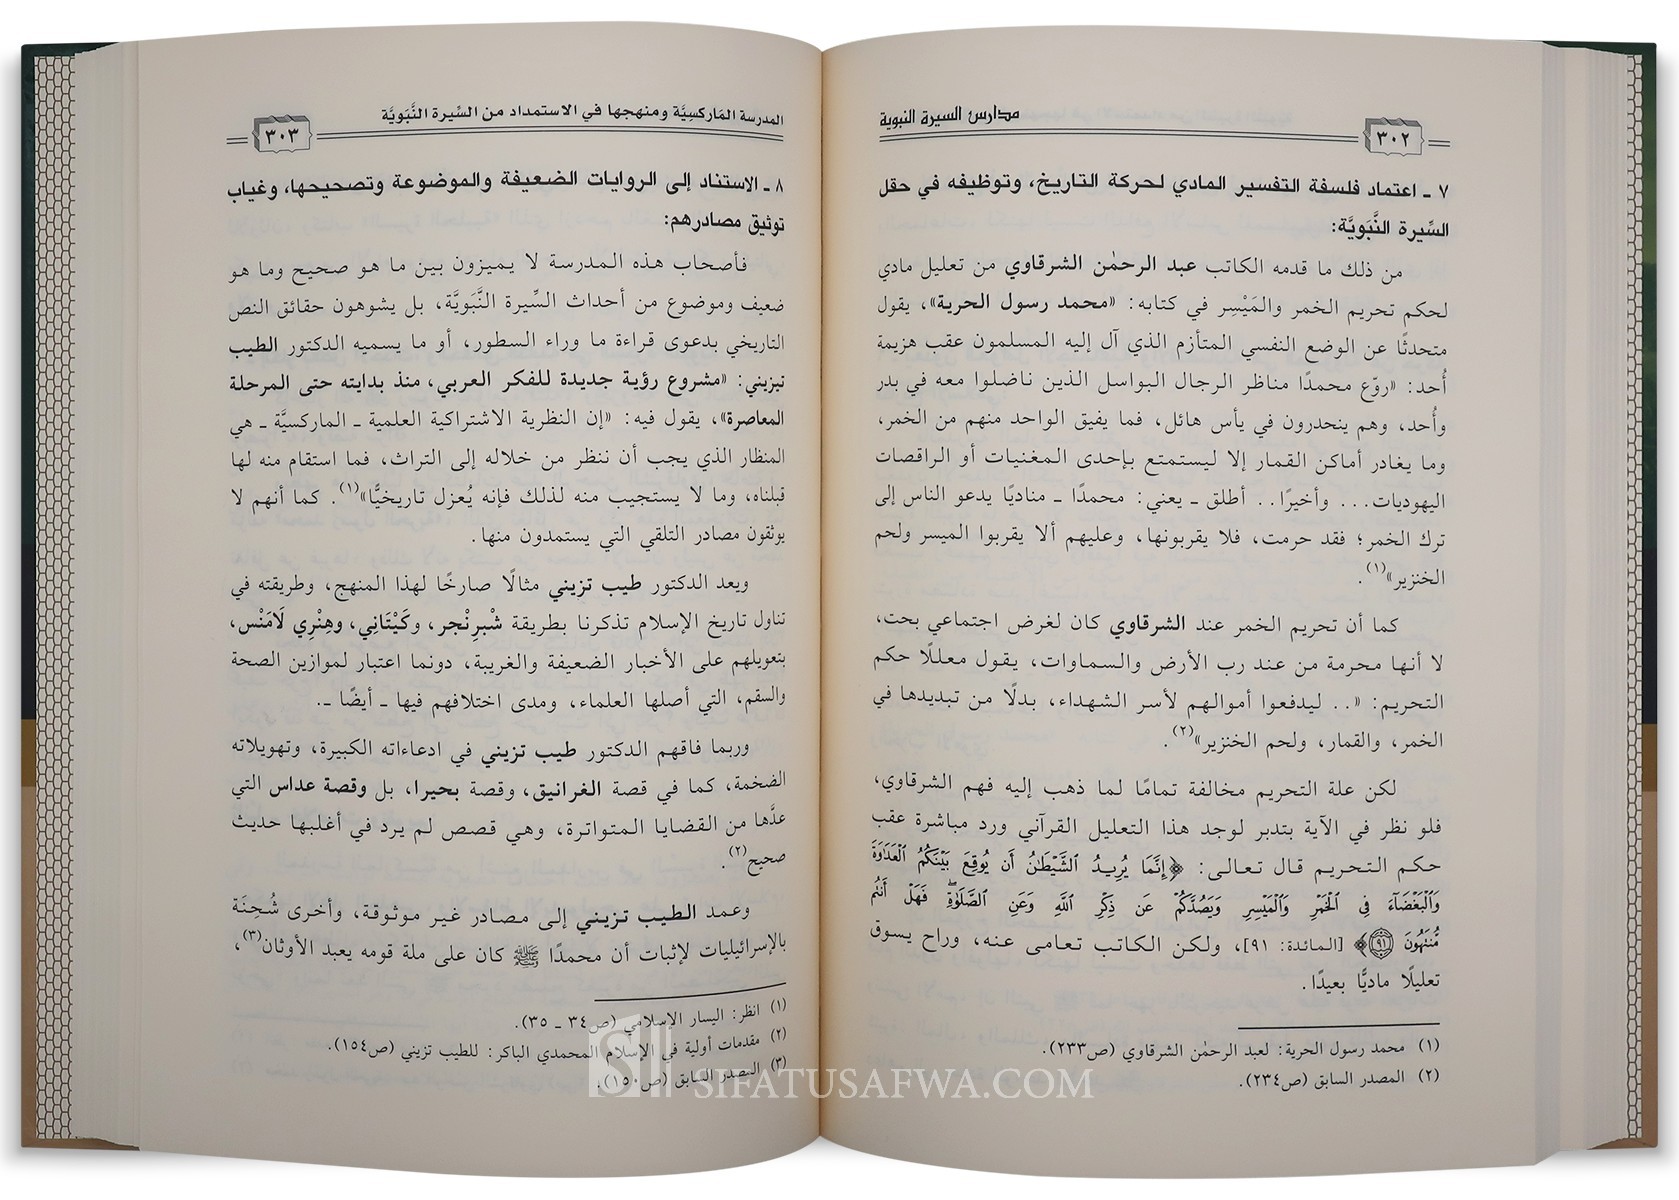 مدارس السيرة النبوية
٣٠٢
٧ ـ اعتماد فلسفة التفسير المادي لحركة التاريخ، وتوظيفه في حقل
السِّيرة النَّبَويَّة:
من ذلك ما قدمه الكاتب عبد الرحمٰن الشرقاوي من تعليل مادي
لحكم تحريم الخمر والمَيْسِر في كتابه: «محمد رسول الحرية»، يقول
متحدثًا عن الوضع النفسي المتأزم الذي آل إليه المسلمون عقب هزيمة
أُحد: «روّع محمدًا مناظر الرجال البواسل الذين ناضلوا معه في بدر
وأُحد، وهم ينحدرون في يأس هائل، فما يفيق الواحد منهم من الخمر،
وما يغادر أماكن القمار إلا ليستمتع بإحدى المغنيات أو الراقصات
اليهوديات... وأخيرًا.. أطلق ـ يعني: محمدًا ـ مناديًا يدعو الناس إلى
ترك الخمر؛ فقد حرمت، فلا يقربونها، وعليهم ألا يقربوا الميسر ولحم
الخنزير»(١).
كما أن تحريم الخمر عند الشرقاوي كان لغرض اجتماعي بحت،
لا أنها محرمة من عند رب الأرض والسماوات، يقول معللًا حكم
التحريم: «.. ليدفعوا أموالهم لأسر الشهداء، بدلًا من تبديدها في
الخمر، والقمار، ولحم الخنزير»(٢).
لكن علة التحريم مخالفة تمامًا لما ذهب إليه فهم الشرقاوي،
فلو نظر في الآية بتدبر لوجد هذا التعليل القرآني ورد مباشرة عقب
حكم التحريم قال تعالى: ﴿إِنَّمَا يُرِيدُ ٱلشَّيْطَٰنُ أَن يُوقِعَ بَيْنَكُمُ ٱلْعَدَٰوَةَ
وَٱلْبَغْضَآءَ فِى ٱلْخَمْرِ وَٱلْمَيْسِرِ وَيَصُدَّكُمْ عَن ذِكْرِ ٱللَّهِ وَعَنِ ٱلصَّلَوٰةِۖ فَهَلْ أَنتُم
مُّنتَهُونَ ۝٩١﴾ [المائدة: ٩١]، ولكن الكاتب تعامى عنه، وراح يسوق
تعليلًا ماديًّا بعيدًا.
(١) محمد رسول الحرية: لعبد الرحمٰن الشرقاوي (ص٢٣٣).
(٢) المصدر السابق (ص٢٣٤).
المدرسة المَاركسِيَّة ومنهجها في الاستمداد من السِّيرة النَّبَويَّة
٣٠٣
٨ ـ الاستناد إلى الروايات الضعيفة والموضوعة وتصحيحها، وغياب
توثيق مصادرهم:
فأصحاب هذه المدرسة لا يميزون بين ما هو صحيح وما هو
ضعيف وموضوع من أحداث السِّيرة النَّبَويَّة، بل يشوهون حقائق النص
التاريخي بدعوى قراءة ما وراء السطور، أو ما يسميه الدكتور الطيب
تيزيني: «مشروع رؤية جديدة للفكر العربي، منذ بدايته حتى المرحلة
المعاصرة»، يقول فيه: «إن النظرية الاشتراكية العلمية ـ الماركسيَّة ـ هي
المنظار الذي يجب أن ننظر من خلاله إلى التراث، فما استقام منه لها
قبلناه، وما لا يستجيب منه لذلك فإنه يُعزل تاريخيًّا»(١). كما أنهم لا
يوثقون مصادر التلقي التي يستمدون منها.
ويعد الدكتور طيب تزيني مثالًا صارخًا لهذا المنهج، وطريقته في
تناول تاريخ الإسلام تذكرنا بطريقة شْبرِنْجر، وكَيْتَانِي، وهِنْرِي لَامَنْس،
بتعويلهم على الأخبار الضعيفة والغريبة، دونما اعتبار لموازين الصحة
والسقم، التي أصلها العلماء، ومدى اختلافهم فيها ـ أيضًا ـ.
وربما فاقهم الدكتور طيب تزيني في ادعاءاته الكبيرة، وتهويلاته
الضخمة، كما في قصة الغرانيق، وقصة بحيرا، بل وقصة عداس التي
عدَّها من القضايا المتواترة، وهي قصص لم يرد في أغلبها حديث
صحيح(٢).
وعمد الطيب تزيني إلى مصادر غير موثوقة، وأخرى شُحِنَة
بالإسرائيليات لإثبات أن محمدًا ﷺ كان على ملة قومه يعبد الأوثان(٣)،
(١) انظر: اليسار الإسلامي (ص٣٤ ـ ٣٥).
(٢) مقدمات أولية في الإسلام المحمدي الباكر: للطيب تزيني (ص١٥٤).
(٣) المصدر السابق (ص١٥٠).
SIFATUSAFWA.COM